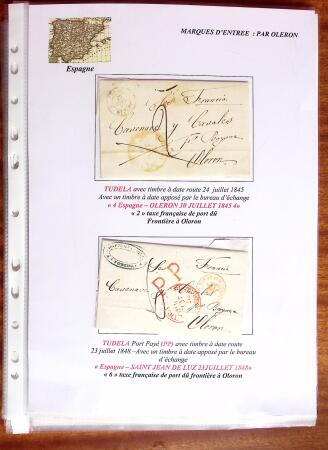 MARQUES D'ENTREE : PAR OLERON
Espagne
Francia
Cavenave y Cavales
Pr Bayona
Oloron
TUDELA avec timbre à date route 24 juillet 1845
Avec un timbre à date apposé par le bureau d'échange
« 4 Espagne – OLERON 30 JUILLET 1845 4»
« 2 » taxe française de port dû
Frontière à Oloron
P P
Francia
Bayona
Oloron
TUDELA Port Payé (PP) avec timbre à date route
23 juillet 1848 –Avec un timbre à date apposé par le bureau
d'échange
« Espagne – SAINT JEAN DE LUZ 23JUILLET 1848»
« 6 » taxe française de port dû frontière à Oloron